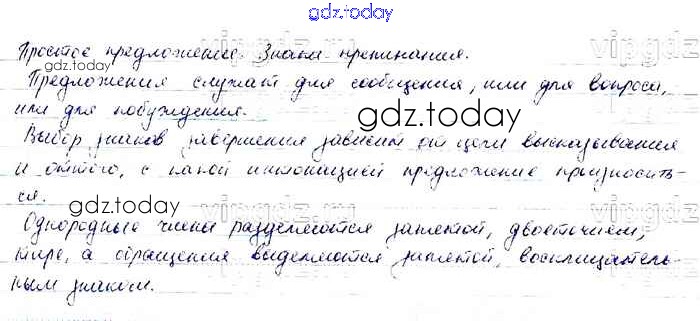 gdz.today
Простое предложение. Знаки препинания.
Предложения служат для сообщения, или для вопроса,
или для побуждения.
gdz.today
Выбор знаков завершения зависит от цели высказывания
и оттого, с какой интонацией предложение произносить-
ся.
gdz.today
Однородные члены разделяются запятой, двоеточием,
тире, а обращения выделяются запятой, восклицатель-
ным знаком.
gdz.today